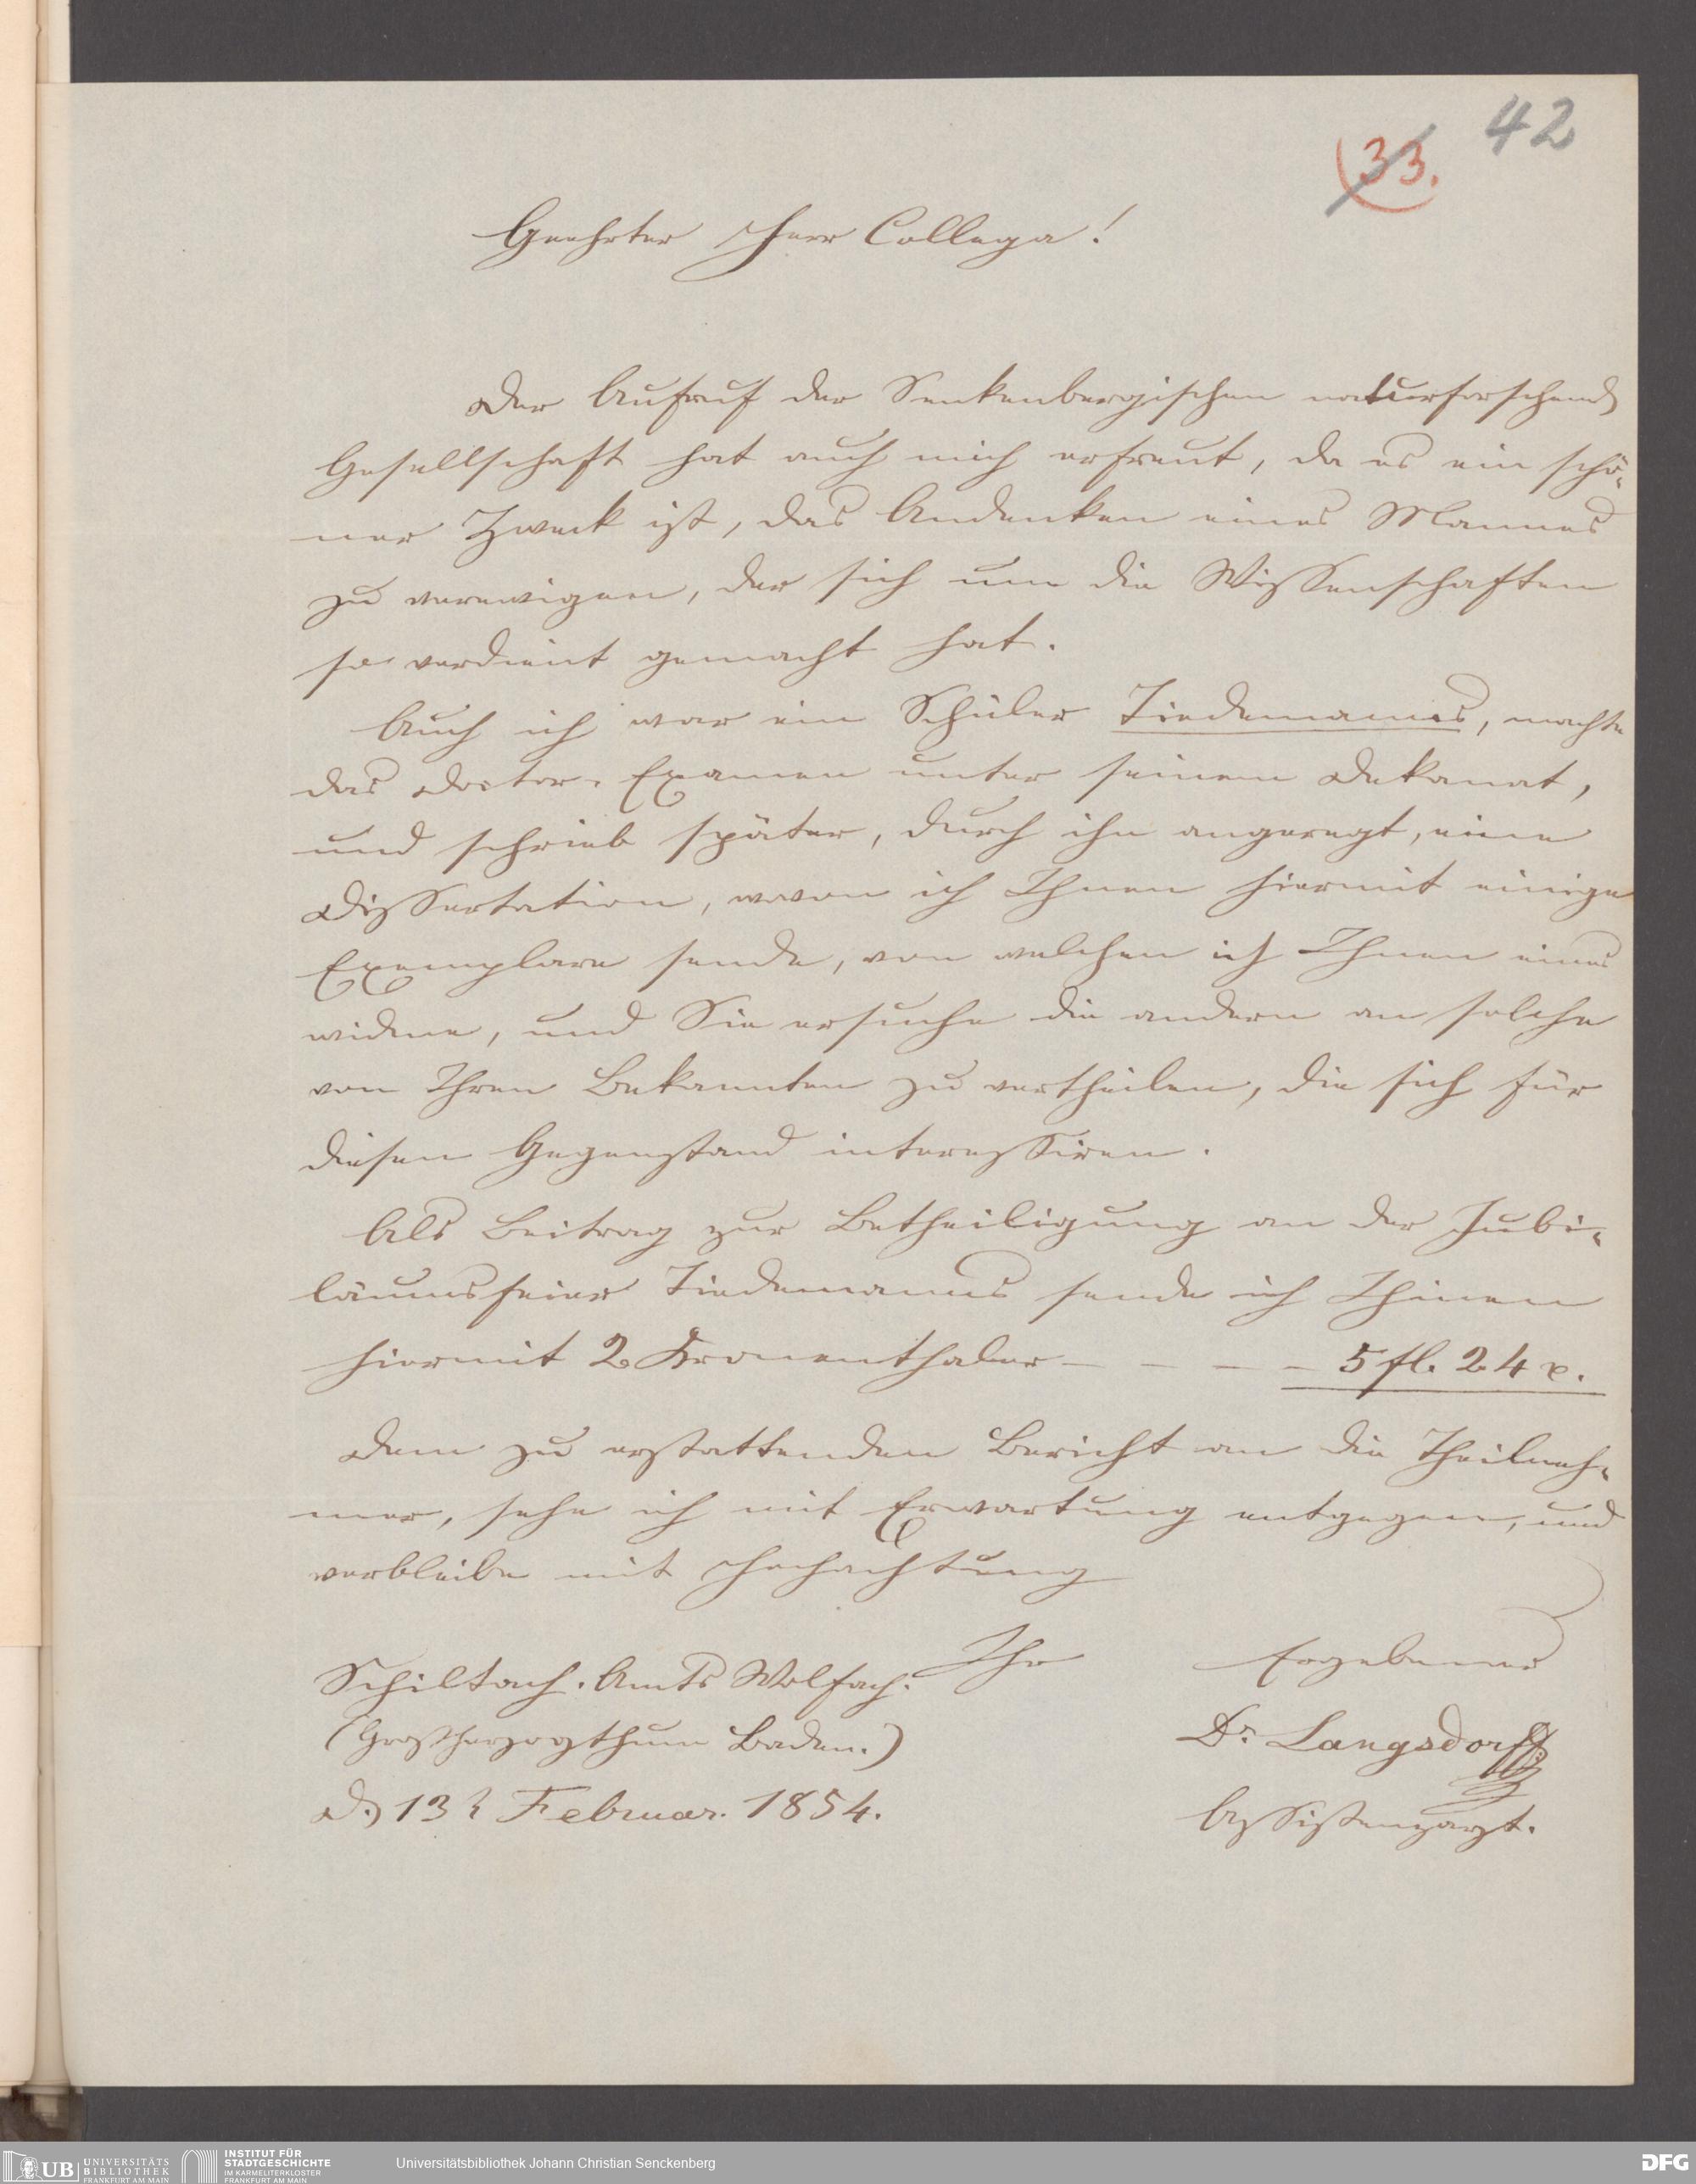 42
33.
Geehrter Herr Collega!
Der Aufruf der Senkenbergischen naturforschend
Gesellschaft hat auch mich erfreut, da es ein schö-
ner Zweck ist, das Andenken eines Mannes
zu verewigen, der sich um die Wissenschaften
so verdient gemacht hat.
Auch ich war ein Schüler Tiedemanns, machte
das Doctor-Examen unter seinem Dekanat,
und schrieb später, durch ihn angeregt, eine
Dissertation, wovon ich Ihnen hiermit einige
Exemplare sende, von welchen ich Ihnen eines
widme, und Sie ersuche die andern an solche
von Ihren Bekannten zu vertheilen, die sich für
diesen Gegenstand interessiren.
Als Beitrag zur Betheiligung an der Jubi-
läumsfeier Tiedemanns sende ich Ihnen
hiermit 2 Kronenthaler - - - - 5 fl. 24 x.
Dem zu erstattenden Bericht an die Theilneh-
mer, sehe ich mit Erwartung entgegen, und
verbleibe mit Hochachtung
Ihr Ergebener
Schiltach. Amts Wolfach.
(Großherzogthum Baden.) Dr. Langsdorff
D. 13t Februar. 1854. Assistenzarzt.
UB UNIVERSITÄTS BIBLIOTHEK FRANKFURT AM MAIN
INSTITUT FÜR STADTGESCHICHTE IM KARMELITERKLOSTER FRANKFURT AM MAIN
Universitätsbibliothek Johann Christian Senckenberg
DFG